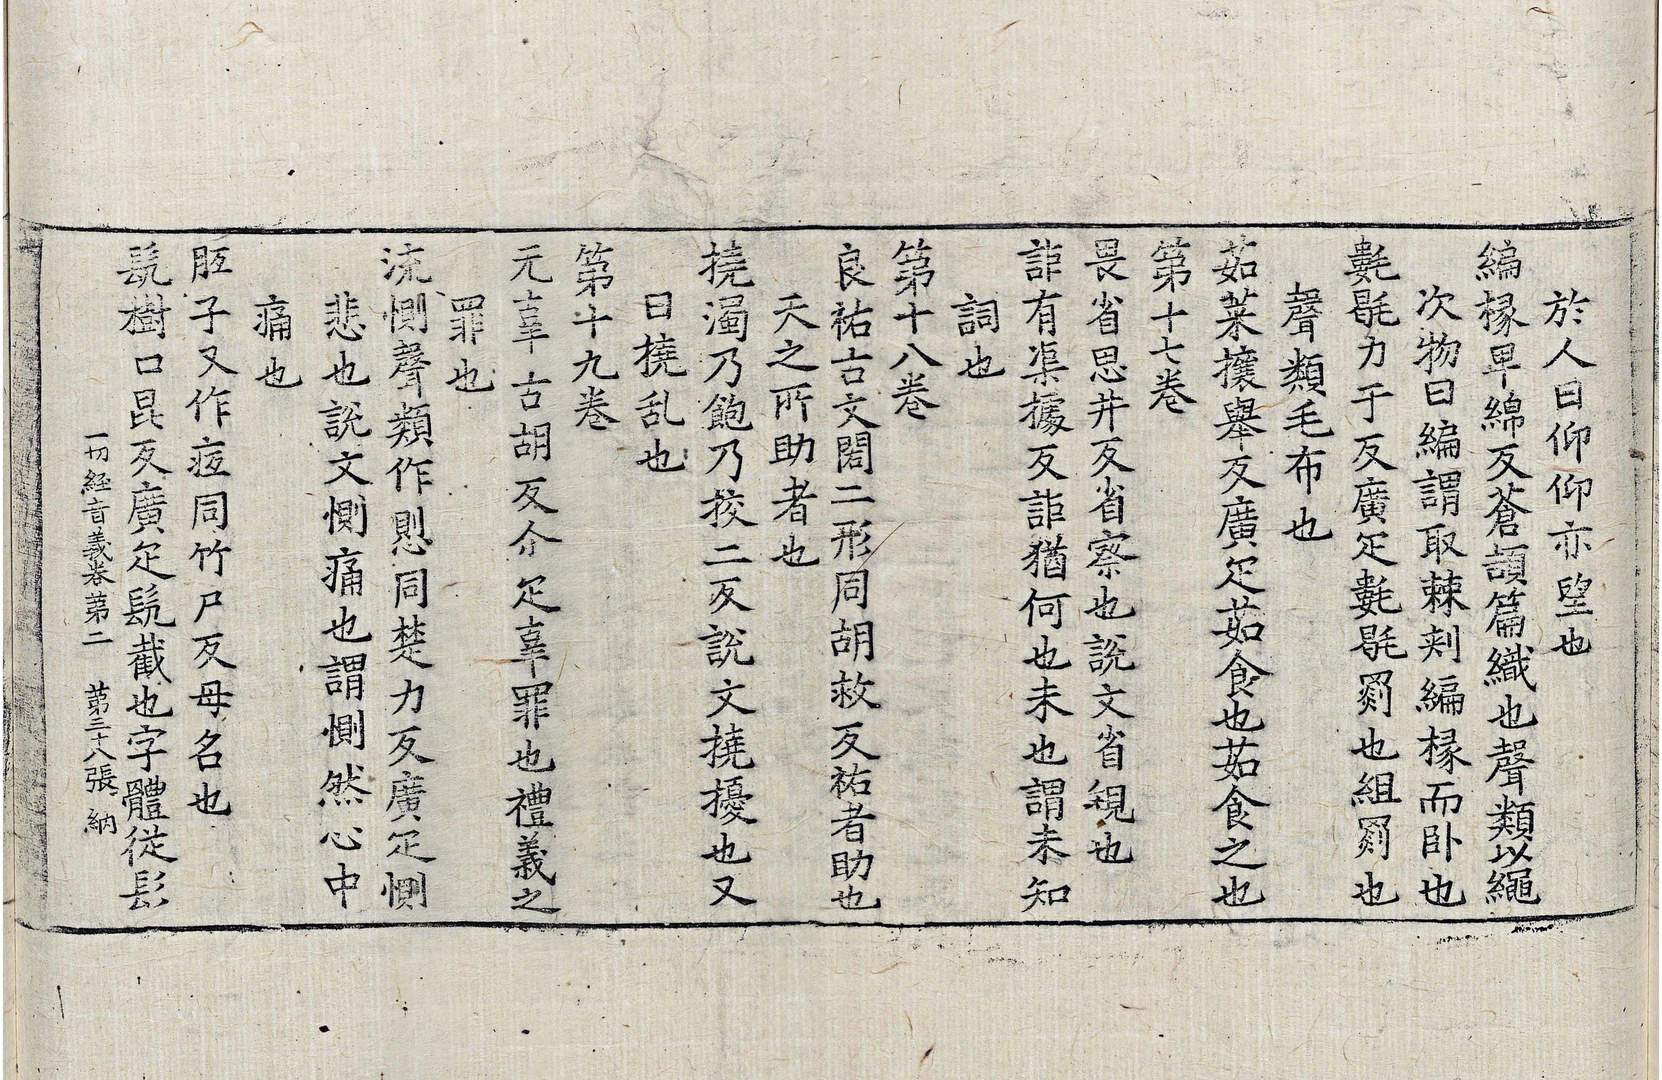 於人曰仰仰亦望也
編椽卑綿反蒼頡篇織也聲類以繩
次物曰編謂取棘刾編椽而臥也
氀毼力于反廣疋氀毼罽也組罽也
聲類毛布也
茹菜攘舉反廣疋茹食也茹食之也
第十七卷
畏省思井反省察也說文省視也
詎有渠據反詎猶何也未也謂未知
詞也
第十八卷
良祐古文閣二形同胡救反祐者助也
天之所助者也
撓濁乃飽乃挍二反說文撓擾也又
曰撓乱也
第十九卷
元辜古胡反尒疋辜罪也禮義之
罪也
流惻聲類作𢠵同楚力反廣疋惻
悲也說文惻痛也謂惻然心中
痛也
胵子又作痓同竹尸反母名也
髡樹口昆反廣疋髡截也字體從髟
一切経音義卷第二 第三十八張 納